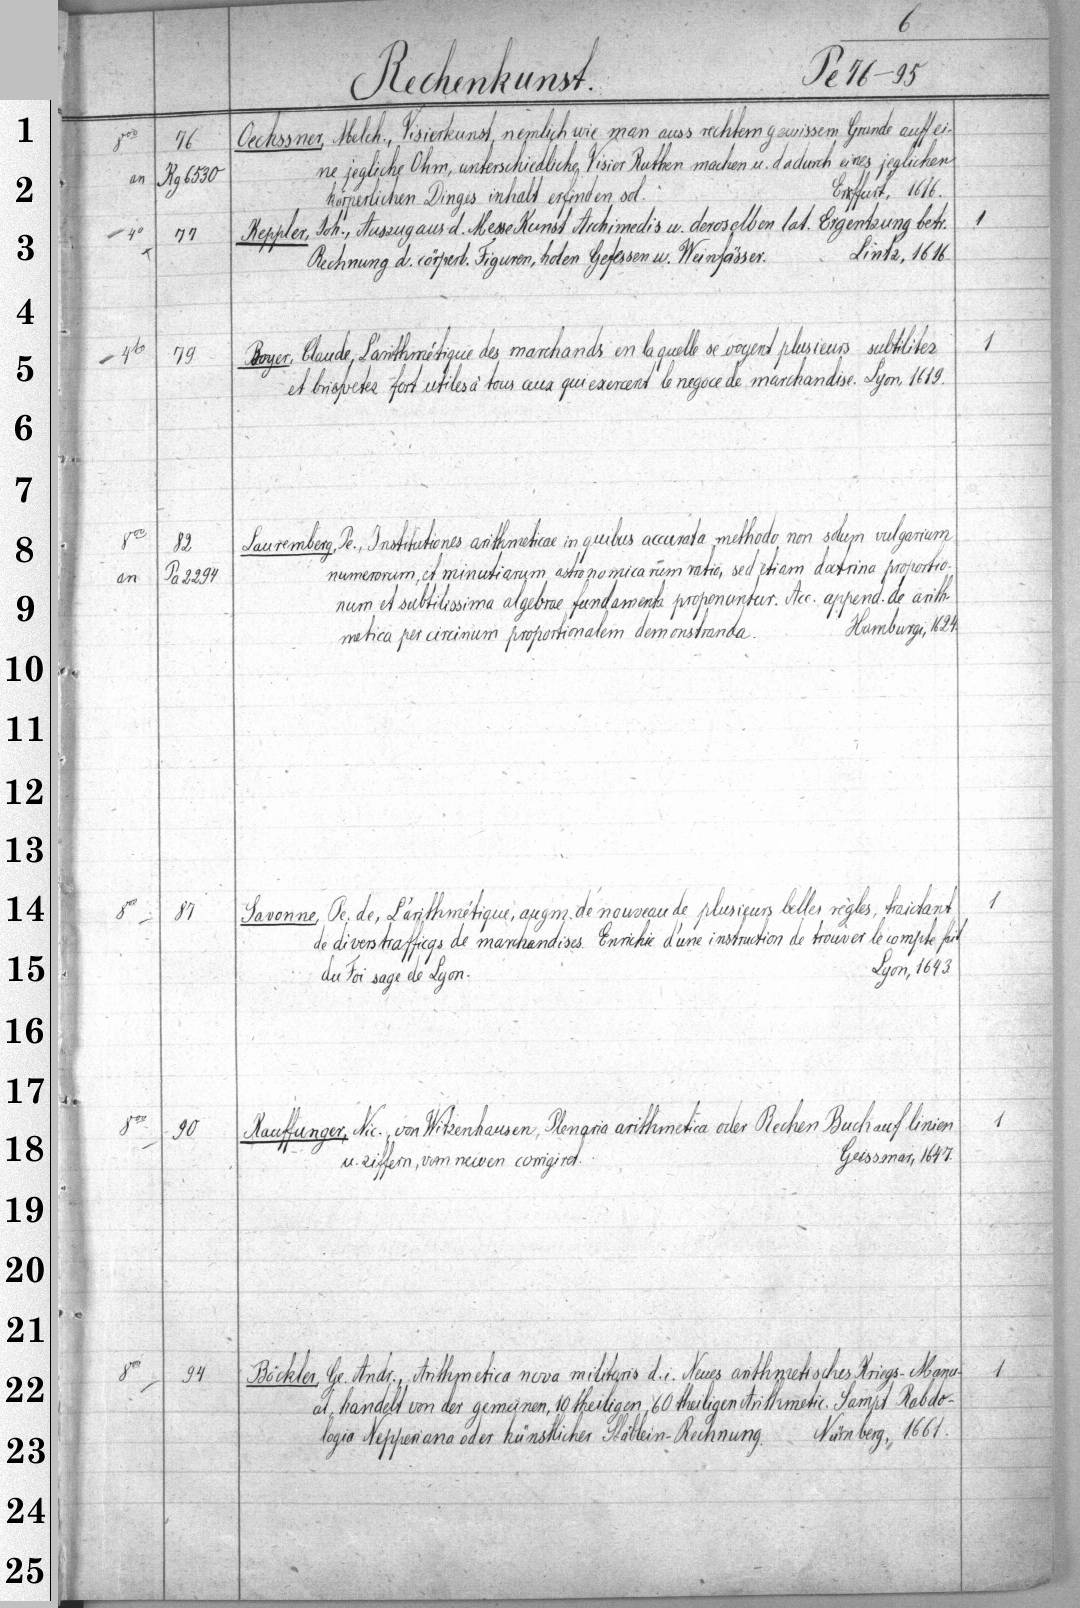 6
Rechenkunst. Pe 76-95
8vo 76 Oechssner, Melch., Visierkunst, nemlich wie man auss rechtem gewissem Grunde auff ei-
an Rg 6530 ne jegliche Ohm, unterschiedliche Visier Ruthen machen u. dadurch eines jeglichen
körperlichen Dinges inhalt erfinden sol. Erffurt, 1616.
4o 77 Keppler, Joh., Auszug aus d. Messe Kunst Archimedis u. deroselben lat. Ergentzung betr. 1
Rechnung d. cörperl. Figuren, holen Gefessen u. Weinfässer. Lintz, 1616
4to 79 Boyer, Claude, L'arithmétique des marchands en laquelle se voyent plusieurs subtilitez 1
et briefvetez fort utiles à tous ceux qui exercent le negoce de marchandise. Lyon, 1619.
8vo 82 Lauremberg, Pe., Institutiones arithmeticae in quibus accurata methodo non solum vulgarium
an Pa 2294 numerorum, et minutiarum astronomicarum ratio, sed etiam doctrina proportio-
num et subtilissima algebrae fundamenta proponuntur. Acc. append. de arith-
metica per circinum proportionalem demonstranda. Hamburgi, 1624.
8vo 87 Savonne, Pe. de, L'arithmétique, augm. de nouveau de plusieurs belles règles, traictant 1
de divers trafficqs de marchandises. Enrichie d'une instruction de trouver le compte fait
du Foi sage de Lyon. Lyon, 1643
8vo 90 Kauffunger, Nic., von Witzenhausen, Plenaria arithmetica oder Rechen Buch auf linien 1
u. ziffern, vom newen corrigiret. Geissmar, 1647.
8vo 94 Böckler, Ge. Andr., Arithmetica nova militaris d.i. Neues arithmetisches Kriegs-Manu- 1
al, handelt von der gemeinen, 10 theiligen, 60 theiligen Arithmetic. Sampt Rabdo-
logia Nepperiana oder künstlicher Stäblein-Rechnung. Nürnberg, 1661.
1
2
3
4
5
6
7
8
9
10
11
12
13
14
15
16
17
18
19
20
21
22
23
24
25